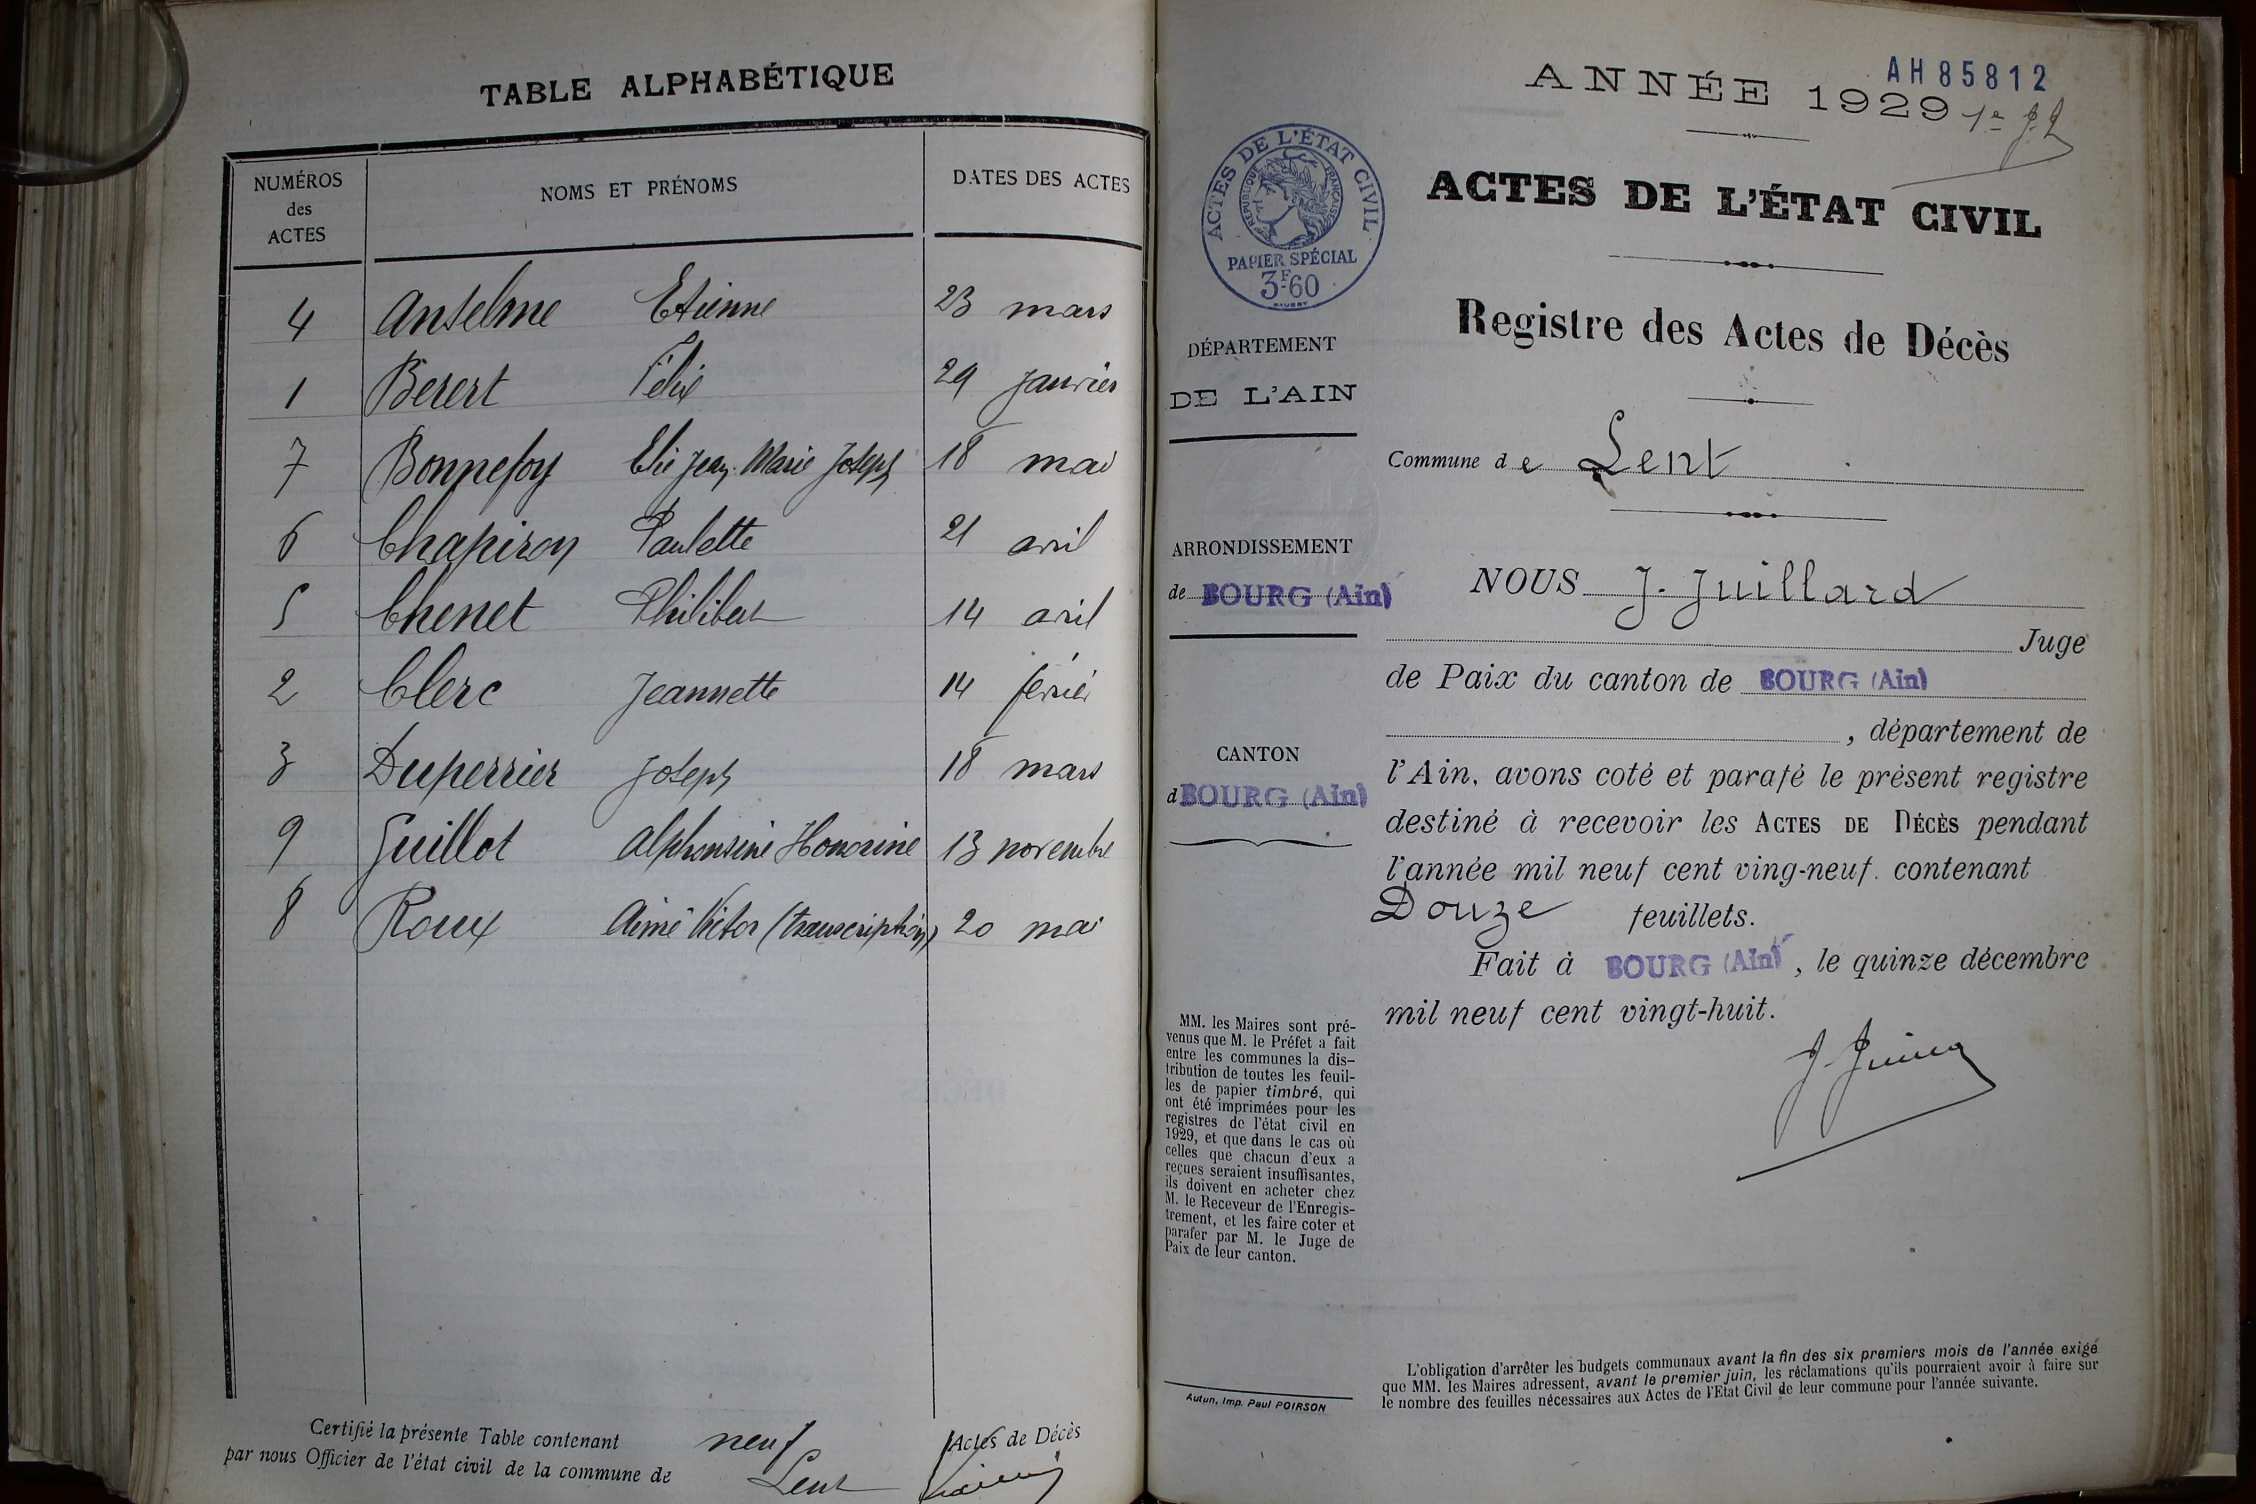 TABLE ALPHABÉTIQUE
NUMÉROS
des
ACTES
NOMS ET PRÉNOMS
DATES DES ACTES
4 Anselme Etienne 23 mars
1 Berert Félix 29 janvier
7 Bonnefoy Elie Jean-Marie Joseph 18 mai
6 Chapiron Paulette 21 avril
5 Chenet Philibert 14 avril
2 Clerc Jeannette 14 février
3 Duperrier Joseph 18 mars
9 Guillot Alphonsine Honorine 13 novembre
8 Roux Aimé Victor (transcription) 20 mai
Certifié la présente Table contenant neuf Actes de Décès
par nous Officier de l'état civil de la commune de Lent
AH85812
ANNÉE 1929
ACTES DE L'ÉTAT CIVIL
RÉPUBLIQUE FRANÇAISE
PAPIER SPÉCIAL
3F60
ACTES DE L'ÉTAT CIVIL
Registre des Actes de Décès
DÉPARTEMENT
DE L'AIN
Commune de Lent
ARRONDISSEMENT
de BOURG (Ain)
CANTON
d BOURG (Ain)
NOUS J. Juillard
Juge
de Paix du canton de BOURG (Ain)
, département de
l'Ain, avons coté et parafé le présent registre
destiné à recevoir les ACTES DE DÉCÈS pendant
l'année mil neuf cent ving-neuf. contenant
Douze feuillets.
Fait à BOURG (Ain), le quinze décembre
mil neuf cent vingt-huit.
MM. les Maires sont pré-
venus que M. le Préfet a fait
entre les communes la dis-
tribution de toutes les feuil-
les de papier timbré, qui
ont été imprimées pour les
registres de l'état civil en
1929, et que dans le cas où
celles que chacun d'eux a
reçues seraient insuffisantes,
ils doivent en acheter chez
M. le Receveur de l'Enregis-
trement, et les faire coter et
parafer par M. le Juge de
Paix de leur canton.
Autun, Imp. Paul POIRSON
L'obligation d'arrêter les budgets communaux avant la fin des six premiers mois de l'année exige
que MM. les Maires adressent, avant le premier juin, les réclamations qu'ils pourraient avoir à faire sur
le nombre des feuilles nécessaires aux Actes de l'Etat Civil de leur commune pour l'année suivante.